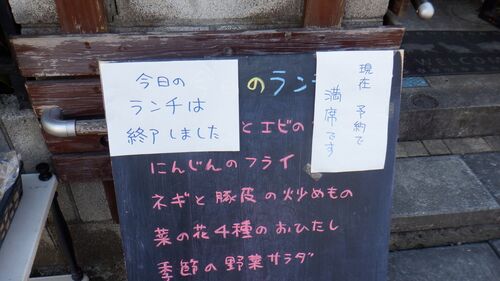 今日の
ランチは
終了しました
現在 予約で
満席です
のラン
とエビの
にんじんのフライ
ネギと豚皮の炒めもの
菜の花4種のおひたし
季節の野菜サラダ